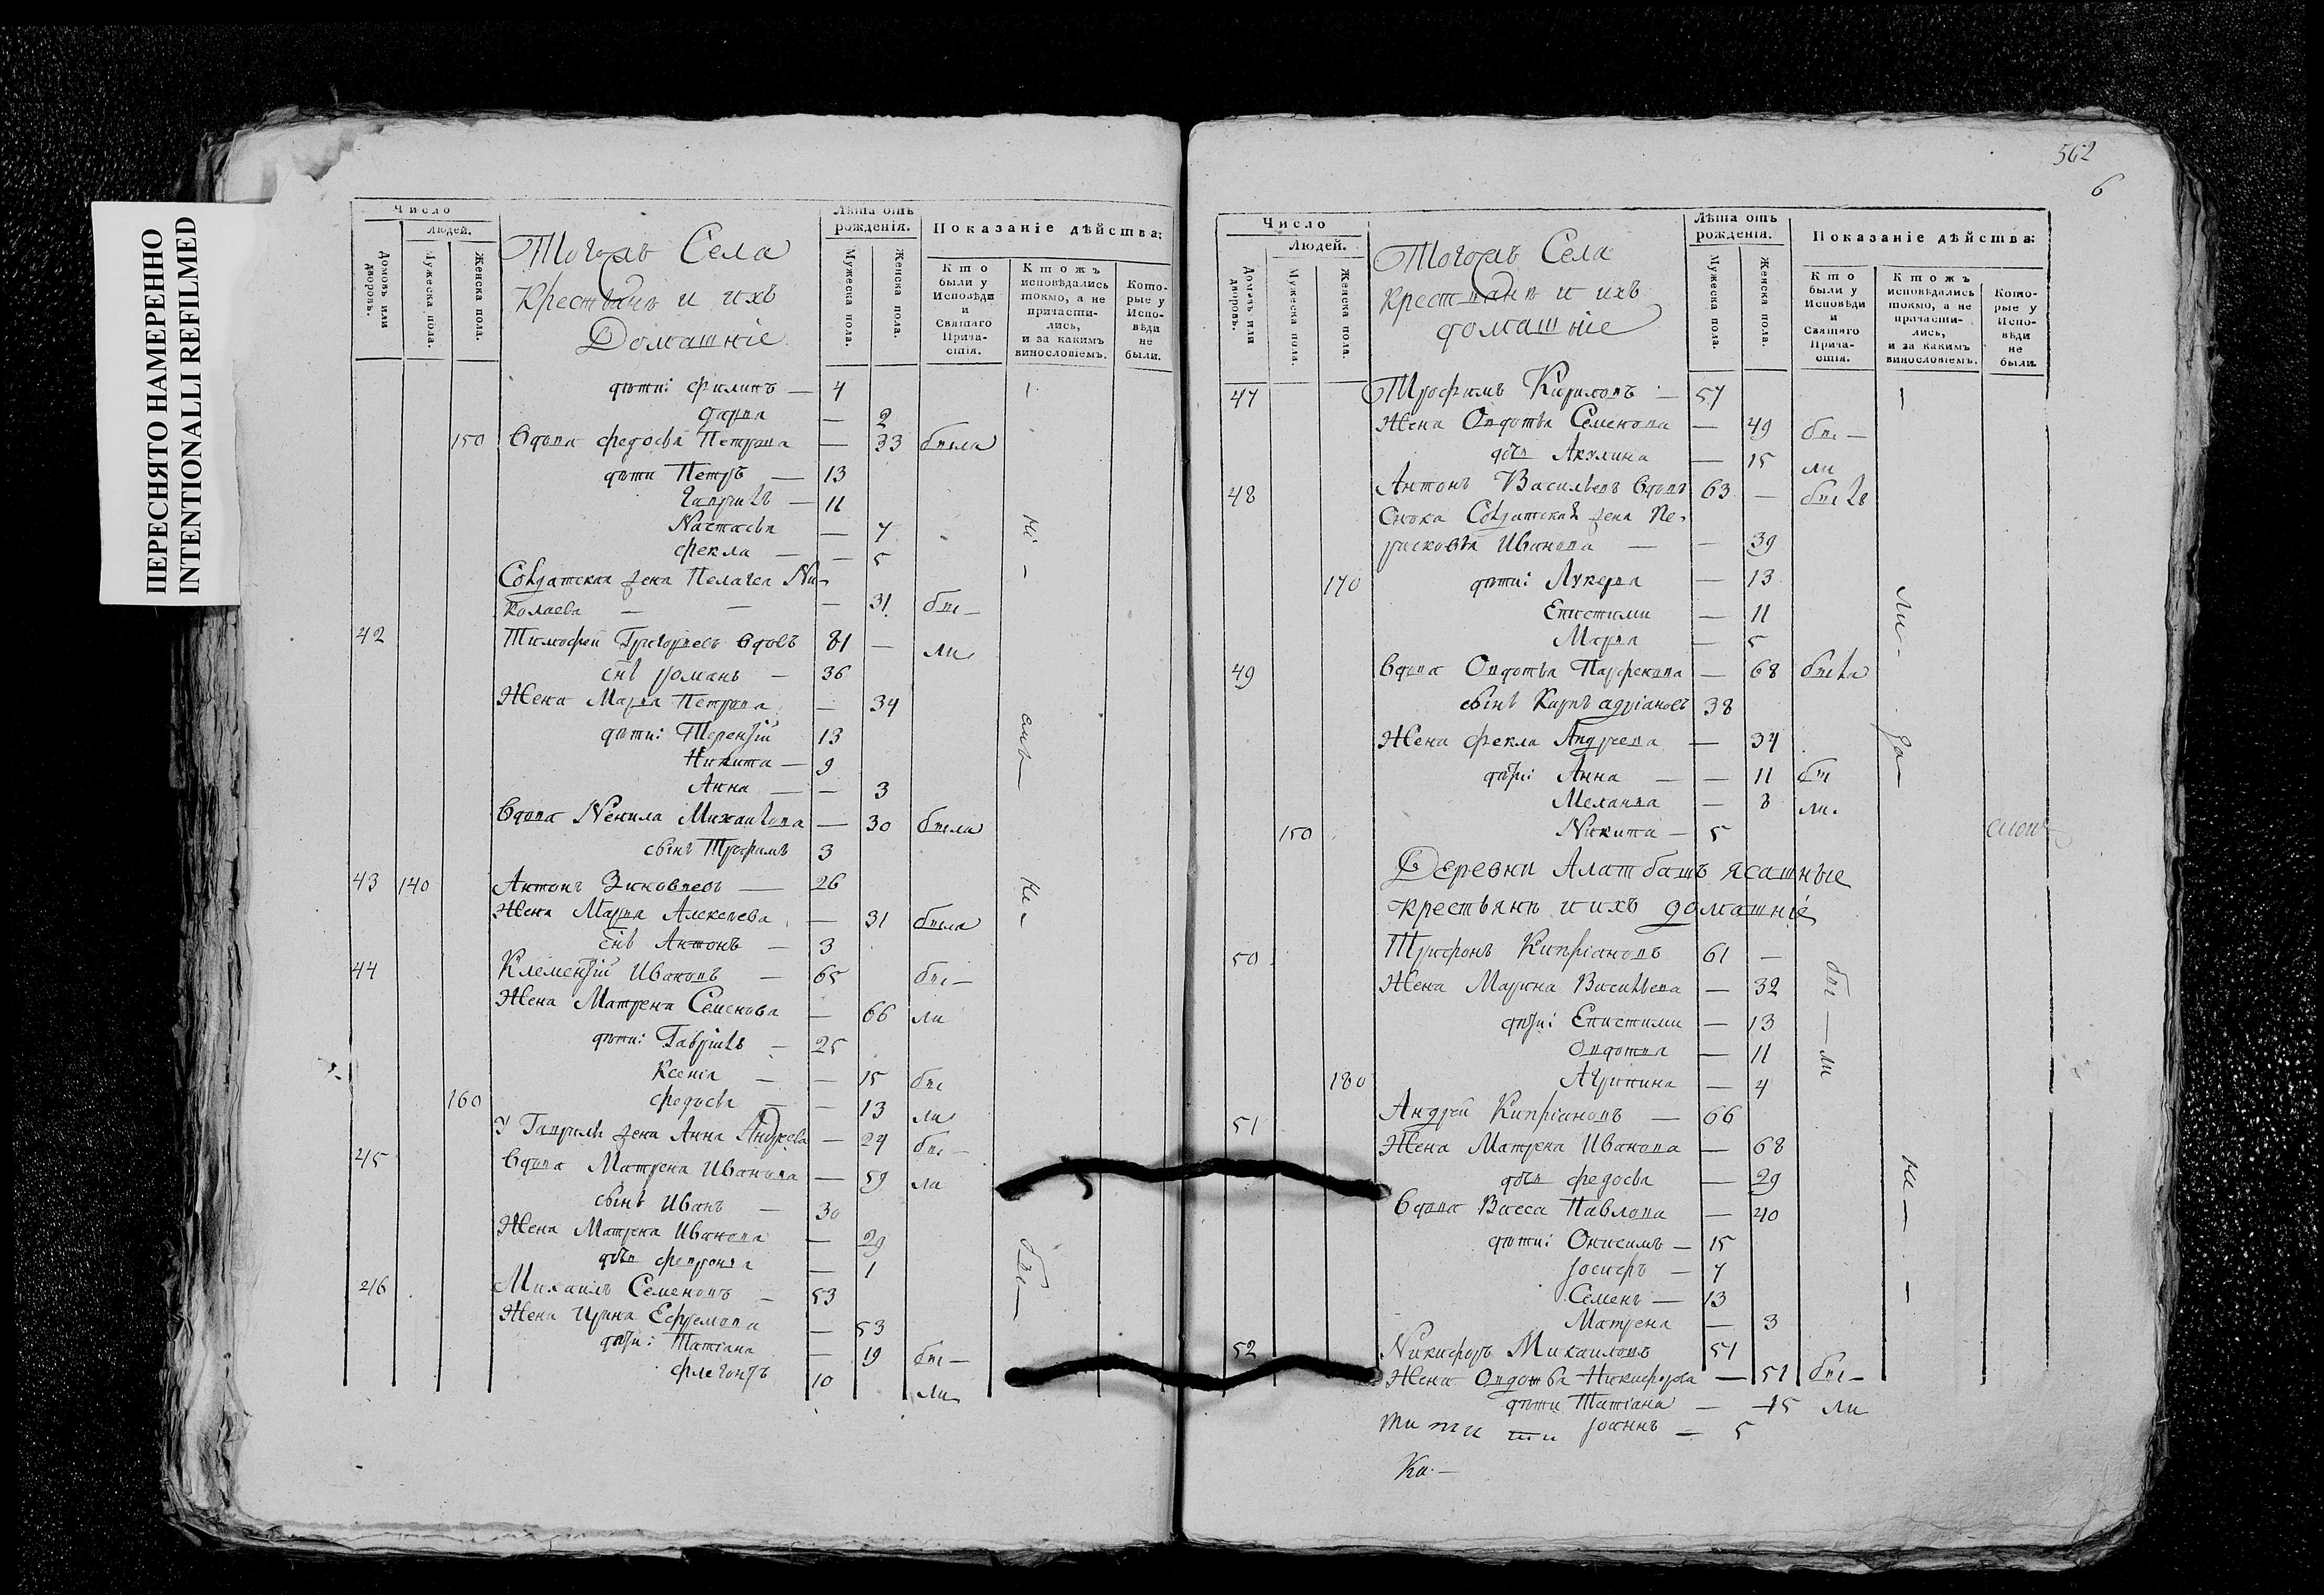 ПЕРЕСНЯТО НАМЕРЕННО
INTENTIONALLI REFILMED
Число
Людей.
Домовъ или дворовъ.
Мужеска пола.
Женска пола.
Тогожъ Села
Крестьянъ и ихъ
Домашніе
Лѣта отъ рожденія.
Мужеска пола.
Женска пола.
Показаніе дѣйства:
Кто были у Исповѣди и Святаго Прича-стія.
Ктожъ исповѣдались токмо, а не причасти-лись, и за какимъ винословіемъ.
Кото-рые у Испо-вѣди не были.
дѣти: Филипъ — 4
Дарья — 2
150 Вдова Федосья Петрова — 33 была
дѣти Петръ — 13
Гаврилъ — 11
Настасья — 7
Фекла — 5
Солдатская жена Пелагея Ни-
колаева — — — 31 бы —
42 Тимофей Григорьевъ вдовъ 81 — ли
снъ Романъ — 36
Жена Марья Петрова — 34
дѣти: Терентій 13
Никита — 9
Анна — — 3
Вдова Ненила Михайлова — 30 была
сынъ Трофимъ 3
43 140 Антонъ Зиновьевъ — 26
Жена Марья Алексеева — 31 была
снъ Антонъ — 3
44 Клементій Ивановъ — 65 бы —
Жена Матрена Семенова — 66 ли
дѣти: Гаврилъ — 25
Ксенія — — 15 бы
160 Федосья — — 13 ли
У Гаврилы жена Анна Андреева — 24 бы —
45 Вдова Матрена Иванова — 59 ли
сынъ Иванъ — 30
Жена Матрена Иванова — 29
дочь Февронья — 1
46 Михаилъ Семеновъ — 53
Жена Ирина Ефремова — 53
дѣти: Татіана — 19 бы —
Флегонтъ 10 ли
562
6
Число
Людей.
Домовъ или дворовъ.
Мужеска пола.
Женска пола.
Тогожъ Села
Крестьянъ и ихъ
домашніе
Лѣта отъ рожденія.
Мужеска пола.
Женска пола.
Показаніе дѣйства:
Кто были у Исповѣди и Святаго Прича-стія.
Ктожъ исповѣдались токмо, а не причасти-лись, и за какимъ винословіемъ.
Кото-рые у Испо-вѣди не были.
47 Трофимъ Кириловъ — 57
Жена Овдотья Семенова — 49 бы —
дочь Акулина — 15 ли
48 Антонъ Васильевъ вдовъ 63 — былъ
Сноха Солдатская жена Пе-
расковья Иванова — — 39
170 дѣти: Лукерья — 13
Епистимия — 11
Марья — 5
49 Вдова Овдотья Парфенова — 68 была
сынъ Карпъ Адріановъ 38
Жена Фекла Андреева — 34
дѣти: Анна — — 11 бы
Меланья — 8 ли
150 Никита — 5
Деревни Алатбашъ ясашные
крестьянъ и ихъ домашніе
50 Трифонъ Кипріановъ 61 —
Жена Марина Васильева — 32 бы — ли
дѣти: Епистимия — 13
Овдотья — 11
180 Агрипина — 4
51 Андрей Кипріановъ — 66
Жена Матрена Иванова — 68
дочь Федосья — 29
Вдова Васса Павлова — 40
дѣти: Онисимъ — 15
Іосифъ — 7
Семенъ — 13
Матрена — 3
52 Никифоръ Михаиловъ 51
Жена Овдотья Никифорова — 51 бы —
дѣти Татіана — 15 ли
Іоаннъ — 5